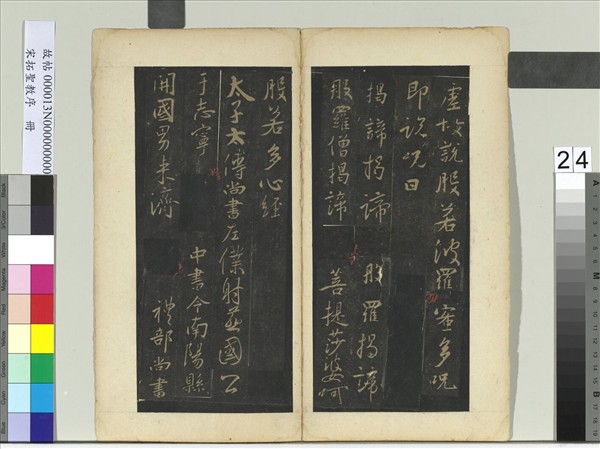 虛故說般若波羅蜜多呪
即說呪曰
揭諦揭諦 般羅揭諦
般羅僧揭諦 菩提莎婆呵
般若多心經
太子太傅尚書左僕射燕國公
于志寧 中書令南陽縣
開國男来濟 禮部尚書
故帖 000013N000000000
宋拓聖教序 冊
24